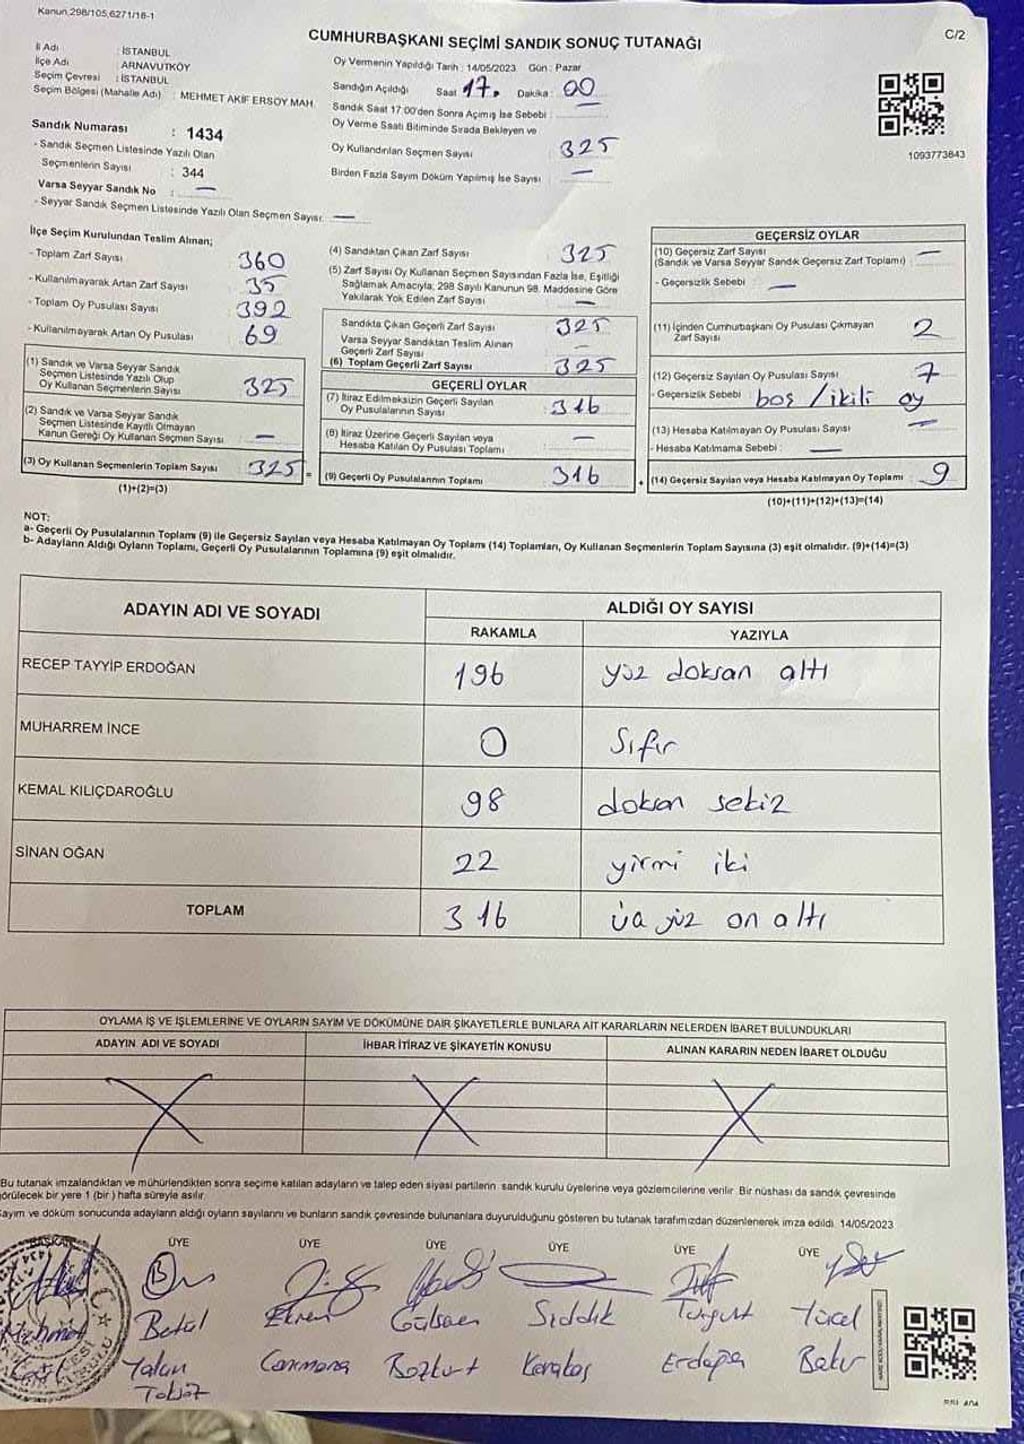 Kanun,298/105,6271/16-1
CUMHURBAŞKANI SEÇİMİ SANDIK SONUÇ TUTANAĞI
C/2
İl Adı : İSTANBUL
İlçe Adı : ARNAVUTKÖY
Seçim Çevresi : İSTANBUL
Seçim Bölgesi (Mahalle Adı) : MEHMET AKİF ERSOY MAH.
Sandık Numarası : 1434
- Sandık Seçmen Listesinde Yazılı Olan
Seçmenlerin Sayısı : 344
Varsa Seyyar Sandık No : —
- Seyyar Sandık Seçmen Listesinde Yazılı Olan Seçmen Sayısı: —
Oy Vermenin Yapıldığı Tarih : 14/05/2023 Gün : Pazar
Sandığın Açıldığı Saat : 17. Dakika : 00
Sandık Saat 17:00'den Sonra Açımış İse Sebebi :
Oy Verme Saati Bitiminde Sırada Bekleyen ve
Oy Kullandırılan Seçmen Sayısı : 325
Birden Fazla Sayım Döküm Yapılmış İse Sayısı : —
1093773843
İlçe Seçim Kurulundan Teslim Alınan;
- Toplam Zarf Sayısı 360
- Kullanılmayarak Artan Zarf Sayısı 35
- Toplam Oy Pusulası Sayısı 392
- Kullanılmayarak Artan Oy Pusulası 69
(1) Sandık ve Varsa Seyyar Sandık
Seçmen Listesinde Yazılı Olup
Oy Kullanan Seçmenlerin Sayısı 325
(2) Sandık ve Varsa Seyyar Sandık
Seçmen Listesinde Kayıtlı Olmayan
Kanun Gereği Oy Kullanan Seçmen Sayısı —
(3) Oy Kullanan Seçmenlerin Toplam Sayısı 325 =
(1)+(2)=(3)
(4) Sandıktan Çıkan Zarf Sayısı 325
(5) Zarf Sayısı Oy Kullanan Seçmen Sayısından Fazla İse, Eşitliği
Sağlamak Amacıyla; 298 Sayılı Kanunun 98. Maddesine Göre
Yakılarak Yok Edilen Zarf Sayısı —
Sandıkta Çıkan Geçerli Zarf Sayısı 325
Varsa Seyyar Sandıktan Teslim Alınan
Geçerli Zarf Sayısı —
(6) Toplam Geçerli Zarf Sayısı 325
GEÇERLİ OYLAR
(7) İtiraz Edilmeksizin Geçerli Sayılan
Oy Pusulalarının Sayısı : 316
(8) İtiraz Üzerine Geçerli Sayılan veya
Hesaba Katılan Oy Pusulası Toplamı : —
(9) Geçerli Oy Pusulalarının Toplamı 316 +
GEÇERSİZ OYLAR
(10) Geçersiz Zarf Sayısı
(Sandık ve Varsa Seyyar Sandık Geçersiz Zarf Toplamı) : —
- Geçersizlik Sebebi : —
(11) İçinden Cumhurbaşkanı Oy Pusulası Çıkmayan
Zarf Sayısı 2
(12) Geçersiz Sayılan Oy Pusulası Sayısı : 7
- Geçersizlik Sebebi : boş / ikili oy
(13) Hesaba Katılmayan Oy Pusulası Sayısı : —
- Hesaba Katılmama Sebebi : —
(14) Geçersiz Sayılan veya Hesaba Katılmayan Oy Toplamı : 9
(10)+(11)+(12)+(13)=(14)
NOT:
a- Geçerli Oy Pusulalarının Toplamı (9) ile Geçersiz Sayılan veya Hesaba Katılmayan Oy Toplamı (14) Toplamları, Oy Kullanan Seçmenlerin Toplam Sayısına (3) eşit olmalıdır. (9)+(14)=(3)
b- Adayların Aldığı Oyların Toplamı, Geçerli Oy Pusulalarının Toplamına (9) eşit olmalıdır.
ADAYIN ADI VE SOYADI
ALDIĞI OY SAYISI
RAKAMLA YAZIYLA
RECEP TAYYİP ERDOĞAN 196 yüz doksan altı
MUHARREM İNCE 0 Sıfır
KEMAL KILIÇDAROĞLU 98 doksan sekiz
SİNAN OĞAN 22 yirmi iki
TOPLAM 316 üç yüz on altı
OYLAMA İŞ VE İŞLEMLERİNE VE OYLARIN SAYIM VE DÖKÜMÜNE DAİR ŞİKAYETLERLE BUNLARA AİT KARARLARIN NELERDEN İBARET BULUNDUKLARI
ADAYIN ADI VE SOYADI İHBAR İTİRAZ VE ŞİKAYETİN KONUSU ALINAN KARARIN NEDEN İBARET OLDUĞU
Bu tutanak imzalandıktan ve mühürlendikten sonra seçime katılan adayların ve talep eden siyasi partilerin sandık kurulu üyelerine veya gözlemcilerine verilir. Bir nüshası da sandık çevresinde
görülecek bir yere 1 (bir) hafta süreyle asılır.
Sayım ve döküm sonucunda adayların aldığı oyların sayılarını ve bunların sandık çevresinde bulunanlara duyurulduğunu gösteren bu tutanak tarafımızdan düzenlenerek imza edildi. 14/05/2023
BAŞKAN ÜYE ÜYE ÜYE ÜYE ÜYE ÜYE
Mehmet Betül Ekrem Gülseren Sıddık Turgut Yücel
Yalçın Bozkurt Karataş Bakır